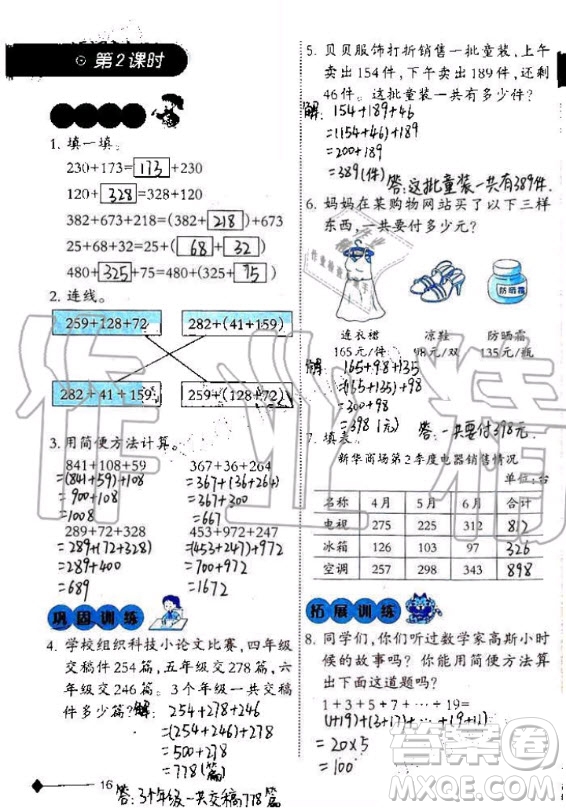 第2课时
1. 填一填。
230+173=173+230
120+328=328+120
382+673+218=(382+218)+673
25+68+32=25+(68+32)
480+325+75=480+(325+75)
2. 连线。
259+128+72 282+(41+159)
282+41+159 259+(128+72)
3. 用简便方法计算。
841+108+59 367+36+264
=(841+59)+108 =367+(36+264)
=900+108 =367+300
=1008 =667
289+72+328 453+972+247
=289+(72+328) =(453+247)+972
=289+400 =700+972
=689 =1672
巩固训练
4. 学校组织科技小论文比赛,四年级
交稿件254篇,五年级交278篇,六
年级交246篇。3个年级一共交稿
件多少篇? 解: 254+278+246
=(254+246)+278
=500+278
=778(篇)
答:3个年级一共交稿778篇
16
5. 贝贝服饰打折销售一批童装,上午
卖出154件,下午卖出189件,还剩
46件。这批童装一共有多少件?
解: 154+189+46
=(154+46)+189
=200+189
=389(件)
答:这批童装一共有389件.
6. 妈妈在某购物网站买了以下三样
东西,一共要付多少元?
防晒霜
连衣裙 凉鞋 防晒霜
165元/件 98元/双 135元/瓶
解: 165+98+135
=(165+135)+98
=300+98
=398(元)
答:一共要付398元.
7. 填表。
新华商场第2季度电器销售情况
单位:台
名称 4月 5月 6月 合计
电视 275 225 312 812
冰箱 126 103 97 326
空调 257 298 343 898
拓展训练
8. 同学们,你们听过数学家高斯小时
候的故事吗?你能用简便方法算
出下面这道题吗?
1+3+5+7+…+19=
(1+19)+(3+17)+…+(9+11)
=20×5
=100
作业精灵
答案圈
MXQE.COM